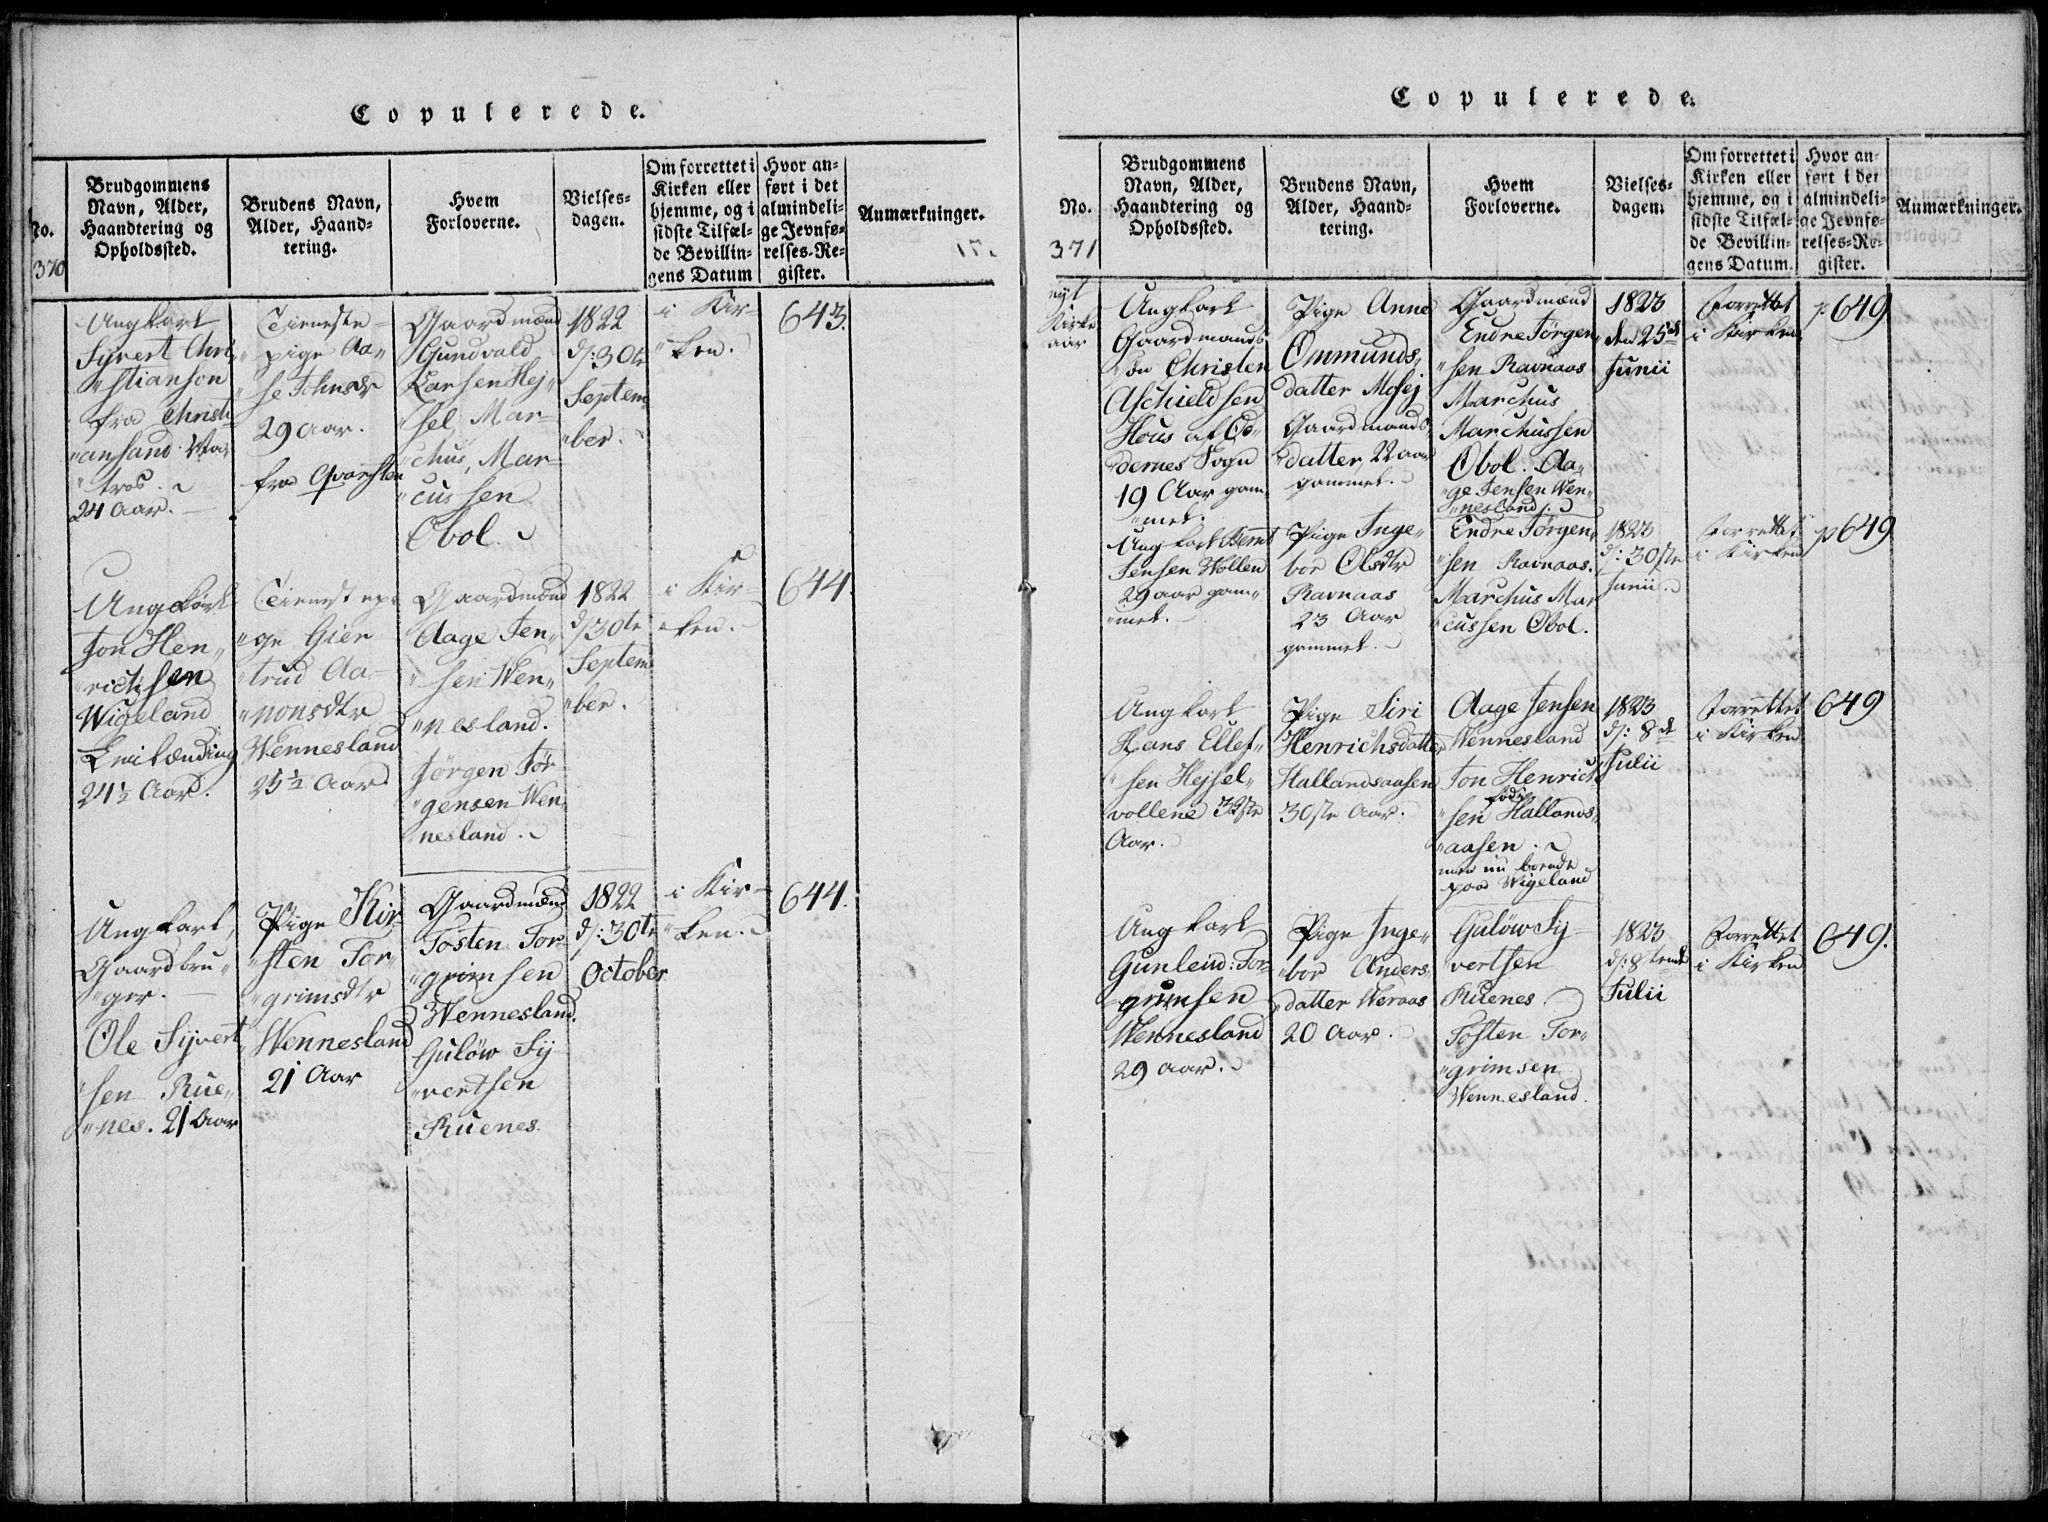 Copulerede.
No.
370
Brudgommens
Navn, Alder,
Haandtering og
Opholdssted.
Brudens Navn,
Alder, Haand-
tering.
Hvem
Forloverne.
Vielses-
dagen.
Om forrettet i
Kirken eller
hjemme, og i
sidste Tilfæl-
de Bevillin-
gens Datum
Hvor an-
ført i det
almindeli-
ge Jevnfø-
relses-Re-
gister.
Anmærkninger.
Ungkarl
Syvert Chri
"stianson
fra Christi
"ansand Ma-
"tros.
24 Aar.
Tieneste-
"pige Aa-
"se Johnsdr
29 Aar.
fra Qvarsten
Gaardmænd
Gundvald
Larsen Hej
"sel, Mar-
"chus, Mar-
"cussen
Obol.
1822
d: 30te
Septem
"ber.
i Kir-
"ken.
643.
Ungkarl
Jon Hen-
"richsen
Wigeland
24½ Aar.
Tienestepi
"ge Gier
"trud Aa-
"nonsdtr
Wennesland
25½ Aar
Gaardmænd
Aage Jen-
"sen Wen-
"nesland.
Jörgen Jör
"gensen Wen-
"nesland.
1822
d: 30te
Septem
"ber.
i Kir-
"ken.
644.
Ungkarl,
Gaardbru-
"ger.
Ole Syvert
"sen Rue-
"nes. 21 Aar
Pige Kir-
"sten Tor-
"grimsdtr
Wennesland
21 Aar
Gaardmænd
Tosten Tor-
"grimsen
Wennesland.
Gulöw Sy-
"vertsen
Ruenes.
1822
d: 30te
October
i Kir-
"ken.
644.
Copulerede.
No.
371
Brudgommens
Navn, Alder,
Haandtering og
Opholdssted.
Brudens Navn,
Alder, Haand-
tering.
Hvem
Forloverne.
Vielses-
dagen.
Om forrettet i
Kirken eller
hjemme, og i
sidste Tilfæl-
de Bevillin-
gens Datum.
Hvor an-
ført i det
almindeli-
ge Jevnfø-
relses-Re-
gister.
Anmærkninger.
nyt
Kirke
aar
Ungkarl
Gaardmands
"søn Christen
Aschieldsen
Hous af Od-
"dernes Sogn
19 Aar gam
"mel.
Pige Anne
Ommunds-
datter Mosej
Gaardmands
"datter 22 aar
gammel.
Gaardmænd
Endre Törgen
"sen Ravnaas
Marchus
Marchussen
Obol. Aa-
"ge Jensen Wen-
"nesland.
1823
den 25de
Junii
Forrettet
i Kirken
p 649
Ungkarl Bernt
Jensen Wollen
29 aar gam-
"mel.
Pige Inge-
bor Olsdtr
Ravnaas
23 Aar
gammel.
Endre Törgen
"sen Ravnaas.
Marchus Mar
"cussen Obol.
1823
d: 30ste
Junii.
Forrettet
i Kirken
p 649
Ungkarl
Hans Ellef-
"sen Hejsel-
vollene 32ste
Aar.
Pige Siri
Henrichsdatter
Hallandsaasen
30ste Aar.
Aage Jensen
Wennesland
Jon Henrich
födt
"sen Hallands-
"aasen.
men nu boende
paa Wigeland
1823
d: 8de
Julii
Forrettet
i Kirken
649
Ungkarl
Gunleiu: Tor-
grimsen
Wennesland
29 aar.
Pige Inge-
"bor Anders
"datter Weraas
20 Aar.
Gulöw Sy-
vertsen
Ruenes
Tosten Tor-
"grimsen
Wennesland.
1823
d: 8tende
Julii
Forrettet
i Kirken
649.